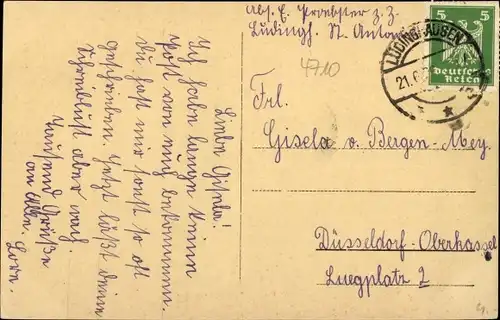 Abs. E. Proebster z. Z.
Lüdingh. St. Anton
4710
LÜDINGHAUSEN
21.6.
5 5
Deutsches
Reich
Frl.
Gisela v. Bergen-Mey.
Düsseldorf-Oberkassel
Luegplatz 2
Liebe Gisela!
Ich habe lange keine
Post von euch bekommen.
Du hast mir sonst so oft
geschrieben. Jetzt läßt deine
Schreiblust aber nach.
Tausend Grüße
an Alle. Lore.